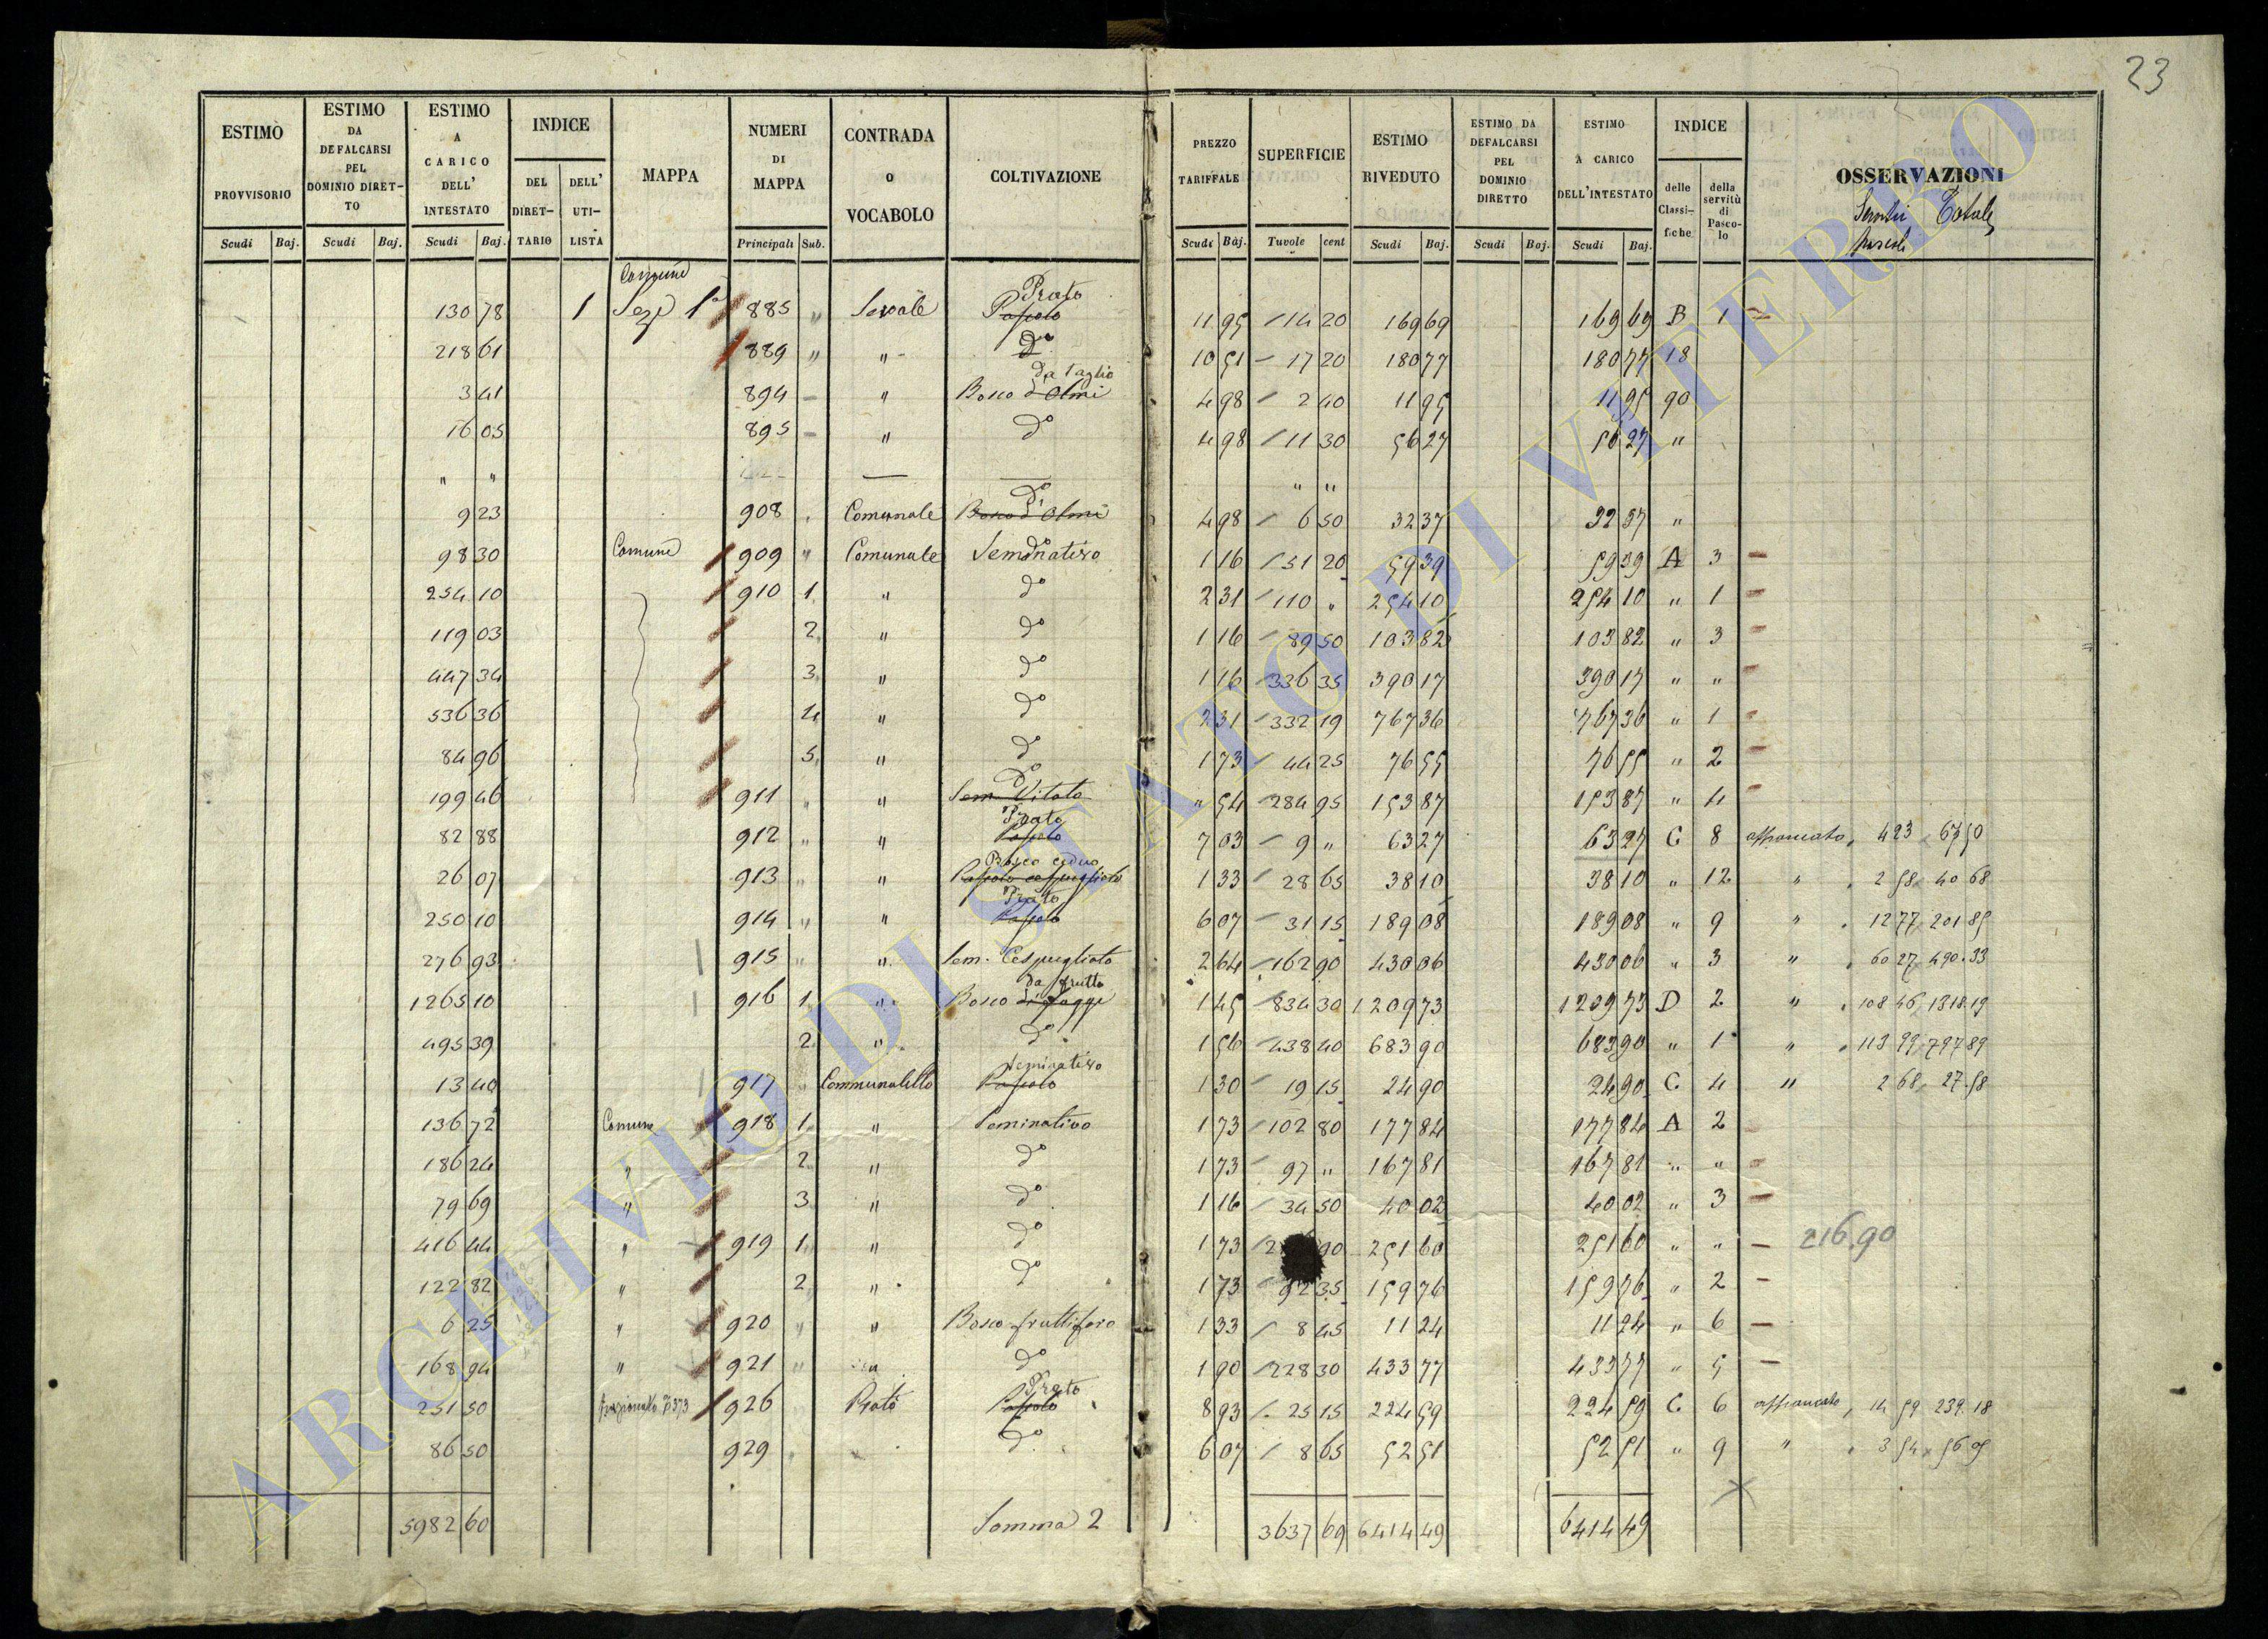 23
ESTIMO PROVVISORIO | ESTIMO DA DEFALCARSI PEL DOMINIO DIRETTO | ESTIMO A CARICO DELL' INTESTATO | INDICE DEL DIRETTARIO | DELL' UTILISTA | MAPPA | NUMERI DI MAPPA | CONTRADA O VOCABOLO | COLTIVAZIONE | PREZZO TARIFFALE | SUPERFICIE | ESTIMO RIVEDUTO | ESTIMO DA DEFALCARSI PEL DOMINIO DIRETTO | ESTIMO A CARICO DELL'INTESTATO | INDICE delle Classifiche | della servitù di Pascolo | OSSERVAZIONI
Scudi | Baj. | Scudi | Baj. | Scudi | Baj. | Principali | Sub. | Scudi | Baj. | Tavole | cent | Scudi | Baj. | Scudi | Baj. | Scudi | Baj. | Totale
Comune
130 78 | 1 | Sez. 1a | 885 | " | Sevale | Prato Pascolo | 11 95 | 14 20 | 169 69 | 169 69 | B | 1
218 61 | 889 | " | " | do | 10 51 | 17 20 | 180 77 | 180 77 | 18
3 41 | 894 | " | Bosco d'Olmi da taglio | 4 98 | 2 40 | 11 95 | 11 95 | 90
16 05 | 895 | " | do | 4 98 | 11 30 | 56 27 | 56 27 | "
" " | " "
9 23 | 908 | Comunale | do Bosco d'Olmi | 4 98 | 6 50 | 32 37 | 32 37 | "
98 30 | Comune | 909 | " | Comunale | Seminativo | 1 16 | 51 20 | 59 39 | 59 39 | A | 3
254 10 | 910 | 1 | " | do | 2 31 | 110 " | 254 10 | 254 10 | " | 1
119 03 | 2 | " | do | 1 16 | 89 50 | 103 82 | 103 82 | " | 3
447 34 | 3 | " | do | 1 16 | 336 35 | 390 17 | 390 17 | " | "
536 36 | 4 | " | do | 2 31 | 332 19 | 767 36 | 767 36 | " | 1
84 96 | 5 | " | do | 1 73 | 44 25 | 76 55 | 76 55 | " | 2
199 46 | 911 | " | " | do Sem. Vitato | " 54 | 284 95 | 153 87 | 153 87 | " | 4
82 88 | 912 | " | " | Prato Pascolo | 7 03 | 9 " | 63 27 | 63 27 | C | 8 | affrancato, 4 23 67 50
26 07 | 913 | " | " | Bosco ceduo Pascolo cespugliato | 1 33 | 28 65 | 38 10 | 38 10 | " | 12 | " 2 58 40 68
250 10 | 914 | " | " | Prato Pascolo | 6 07 | 31 15 | 189 08 | 189 08 | " | 9 | " 12 77 201 85
276 93 | 915 | " | " | Sem. Cespugliato | 2 64 | 162 90 | 430 06 | 430 06 | " | 3 | " 60 27 490.33
1265 10 | 916 | 1 | " | Bosco di faggi da frutto | 1 45 | 834 30 | 1209 73 | 1209 73 | D | 2 | " 108 46 1318.19
495 39 | 2 | " | do | 1 56 | 438 40 | 683 90 | 683 90 | " | 1 | " 113 99 797 89
13 40 | 917 | Communaletto | Seminativo Pascolo | 1 30 | 19 15 | 24 90 | 24 90 | C | 4 | " 2 68 27.58
136 72 | Comune | 918 | 1 | " | Seminativo | 1 73 | 102 80 | 177 84 | 177 84 | A | 2
186 24 | " | 2 | " | do | 1 73 | 97 " | 167 81 | 167 81 | " | "
79 69 | " | 3 | " | do | 1 16 | 34 50 | 40 02 | 40 02 | " | 3
416 44 | " | 919 | 1 | " | do | 1 73 | 90 | 251 60 | 251 60 | " | " | 216.90
122 82 | " | 2 | " | do | 1 73 | 92 35 | 159 76 | 159 76 | " | 2
6 25 | " | 920 | " | " | Bosco fruttifero | 1 33 | 8 45 | 11 24 | 11 24 | " | 6
168 94 | " | 921 | " | do | 1 90 | 228 30 | 433 77 | 433 77 | " | 5
251 50 | frazionato 373 | 926 | Prato | Prato Pascolo | 8 93 | 25 15 | 224 59 | 224 59 | C | 6 | affrancato, 14 59 239.18
86 50 | 929 | do | 6 07 | 8 65 | 52 51 | 52 51 | " | 9 | " 3 54 56 05
5982 60 | Somma 2 | 3637 69 | 6414 49 | 6414 49
ARCHIVIO DI STATO DI VITERBO